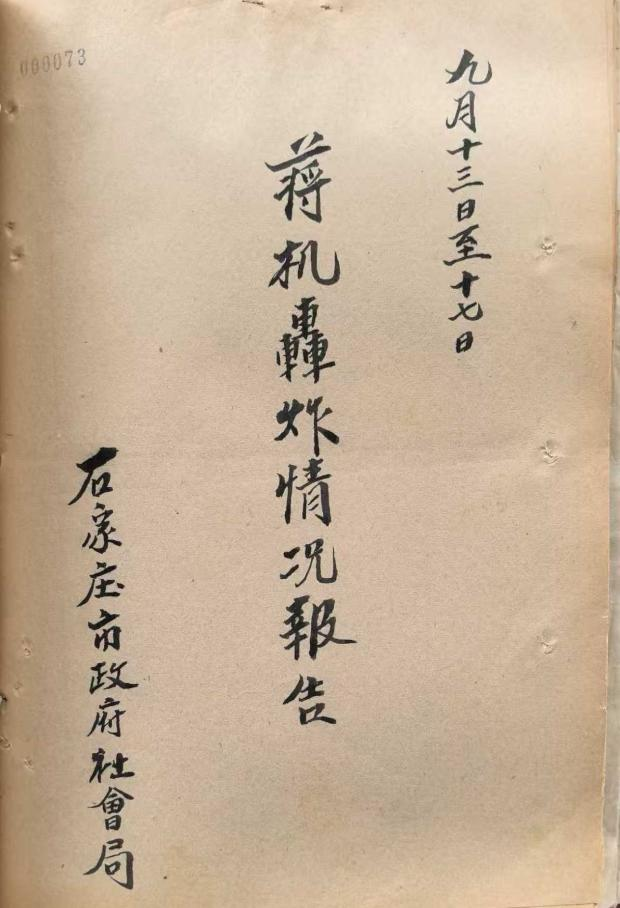 九月十三日至十七日
蒋机轟炸情况報告
石家庄市政府社會局
000073